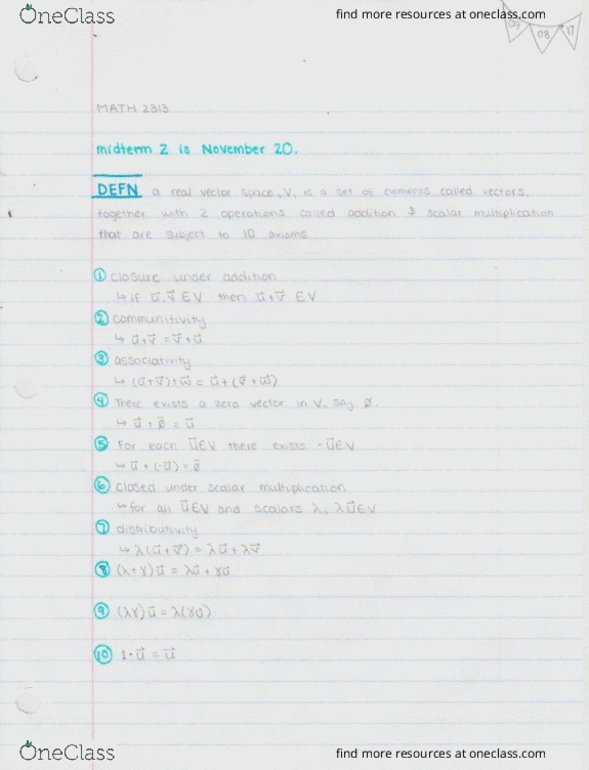 OneClass
find more resources at oneclass.com
09 08 17
MATH 2313
midterm 2 is November 20.
DEFN a real vector space, V, is a set of elements called vectors,
together with 2 operations called addition & scalar multiplication
that are subject to 10 axioms
① closure under addition
↳ if u⃗, v⃗ ∈ V then u⃗ + v⃗ ∈ V
② communitivity
↳ u⃗ + v⃗ = v⃗ + u⃗
③ associativity
↳ (u⃗ + v⃗) + w⃗ = u⃗ + (v⃗ + w⃗)
④ There exists a zero vector in V, say ∅.
↳ u⃗ + ∅⃗ = u⃗
⑤ For each u⃗ ∈ V there exists -u⃗ ∈ V
↳ u⃗ + (-u⃗) = ∅⃗
⑥ closed under scalar multiplication
↳ for all u⃗ ∈ V and scalars λ, λu⃗ ∈ V
⑦ distributivity
↳ λ(u⃗ + v⃗) = λu⃗ + λv⃗
⑧ (λ + γ)u⃗ = λu⃗ + γu⃗
⑨ (λγ)u⃗ = λ(γu⃗)
⑩ 1 · u⃗ = u⃗
OneClass
find more resources at oneclass.com